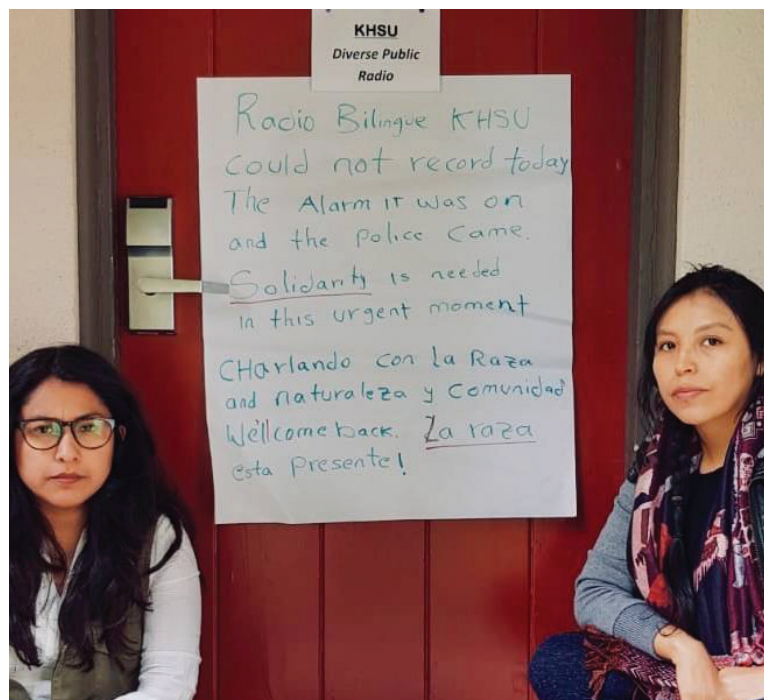 KHSU
Diverse Public
Radio
Radio Bilingue KHSU
could not record today
The Alarm it was on
and the police came.
Solidarity is needed
in this urgent moment
CHarlando con la Raza
and naturaleza y Comunidad
We'llcome back. La raza
esta presente!